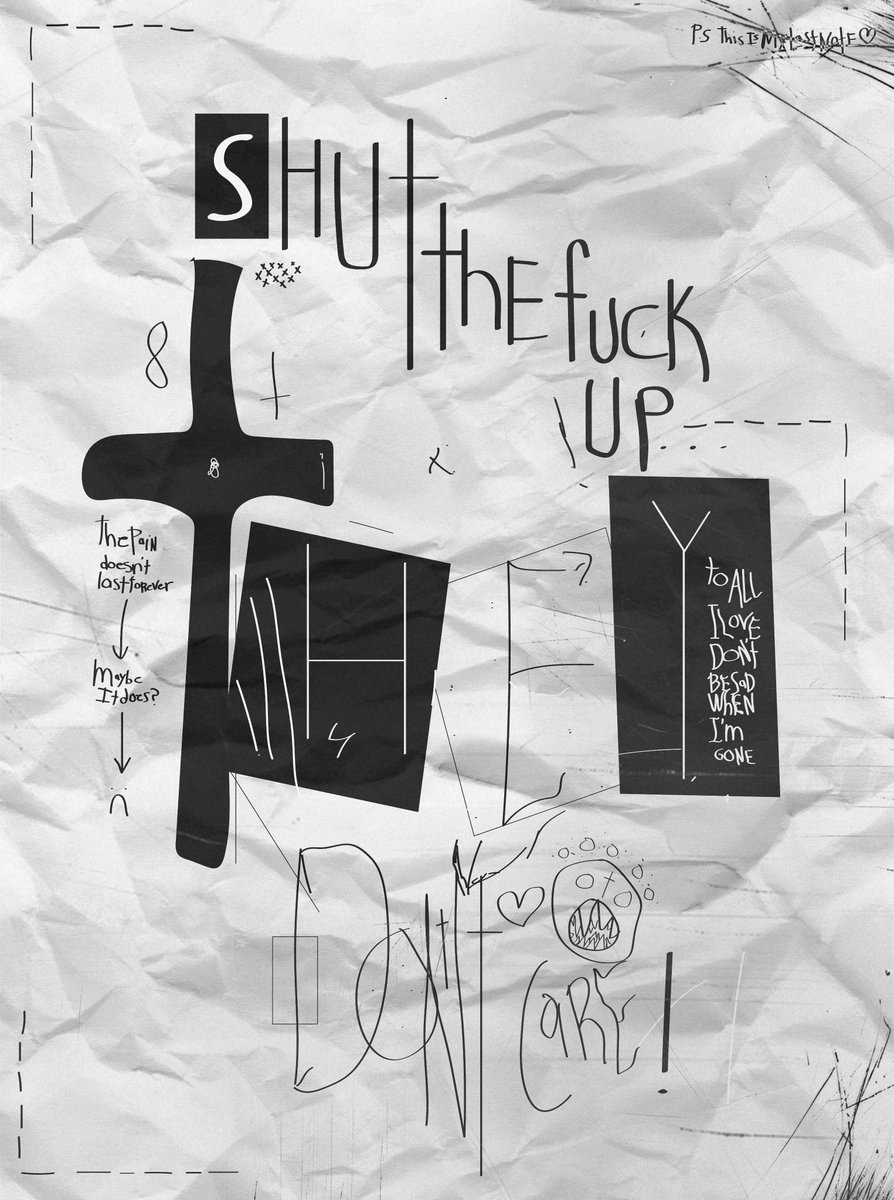 PS This Is My Last Note
SHUt
thE fuCK
UP...
8
the PaiN
doesn't
last forever
Maybe
It does?
tHEY
to ALL
I LOVE
DON't
BE SaD
WhEN
I'm
GONE
DON't
CaRE!